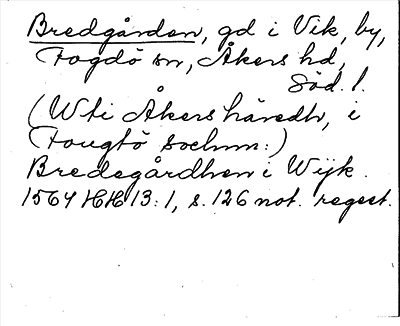 Bredgården, gd i Vik, by,
Fogdö sn, Åkers hd,
Söd. l.
(Wti Åkers häredt, i
Fougtö sochnn:)
Bredegårdhen i Wijk.
1564 HH 13:1, s. 126 not. regest.